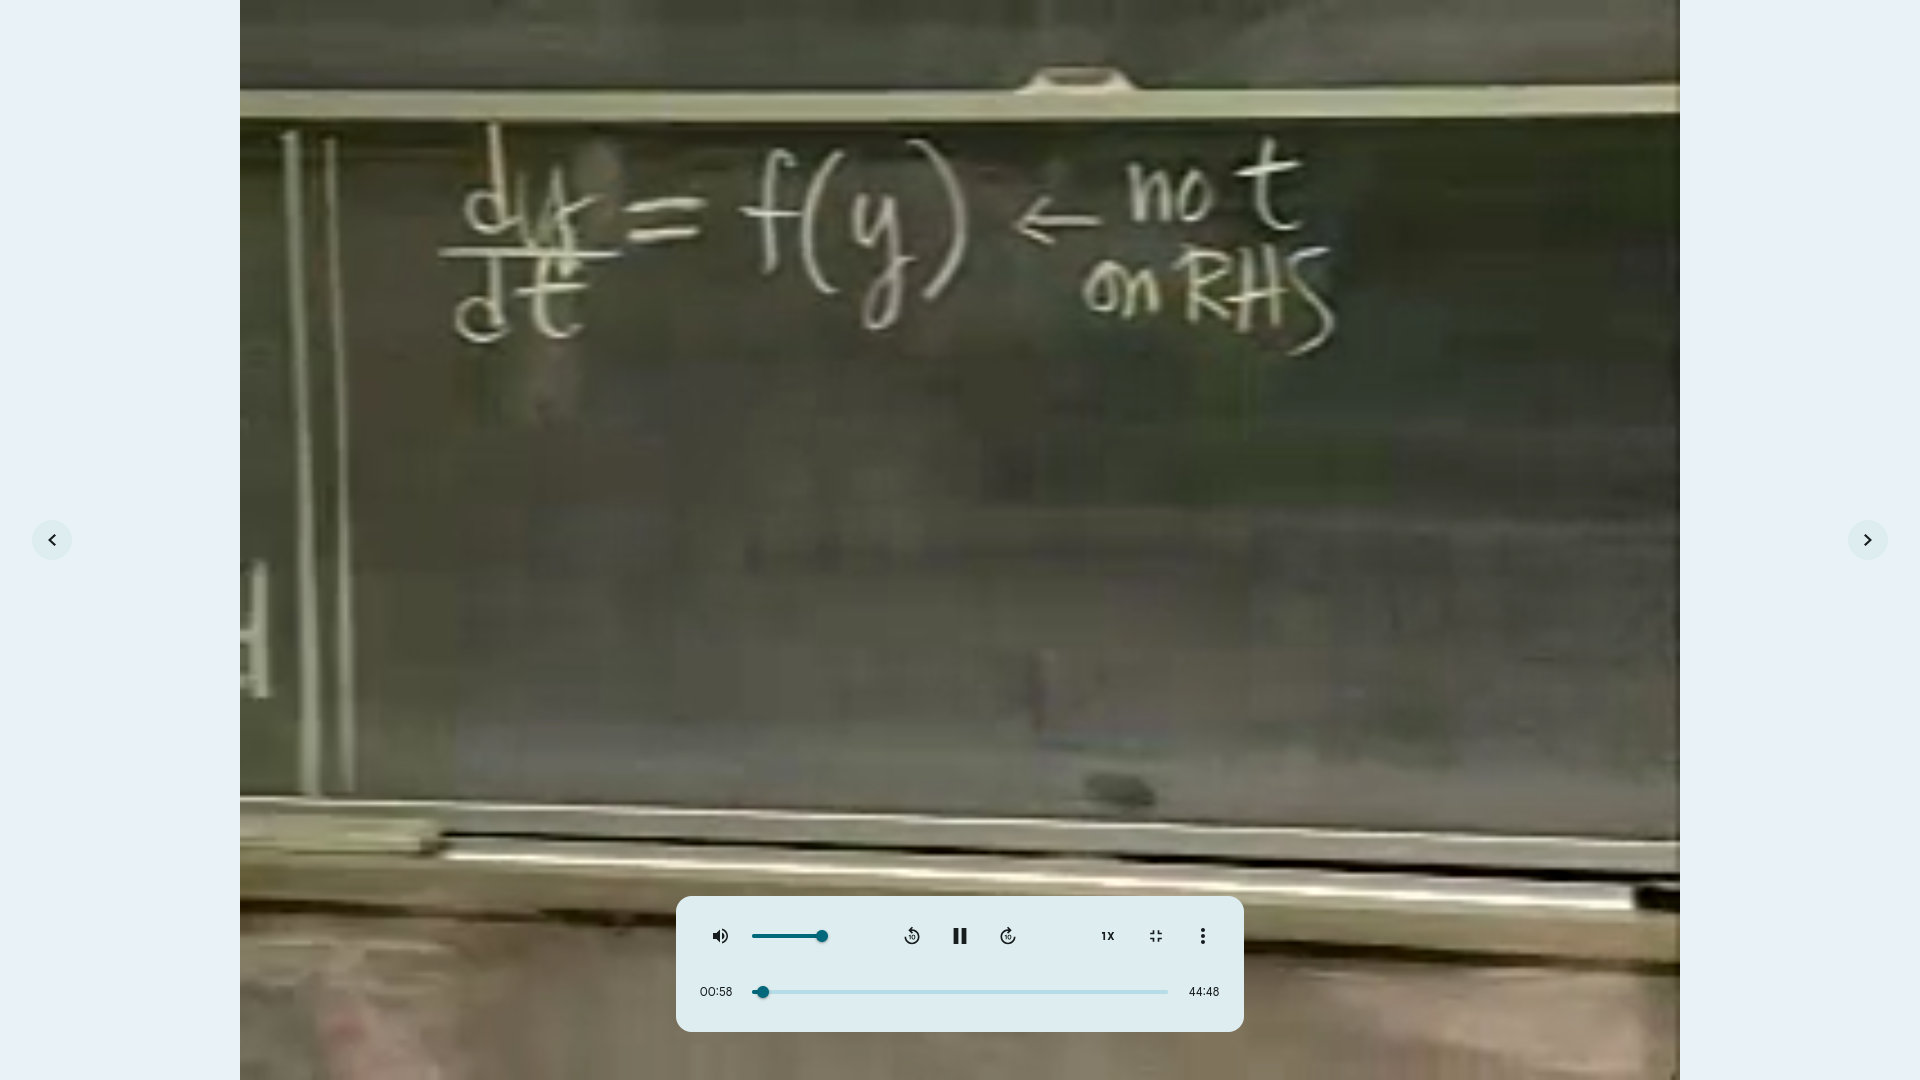 dy/dt = f(y) ← no t
on RHS
1X
00:58
44:48